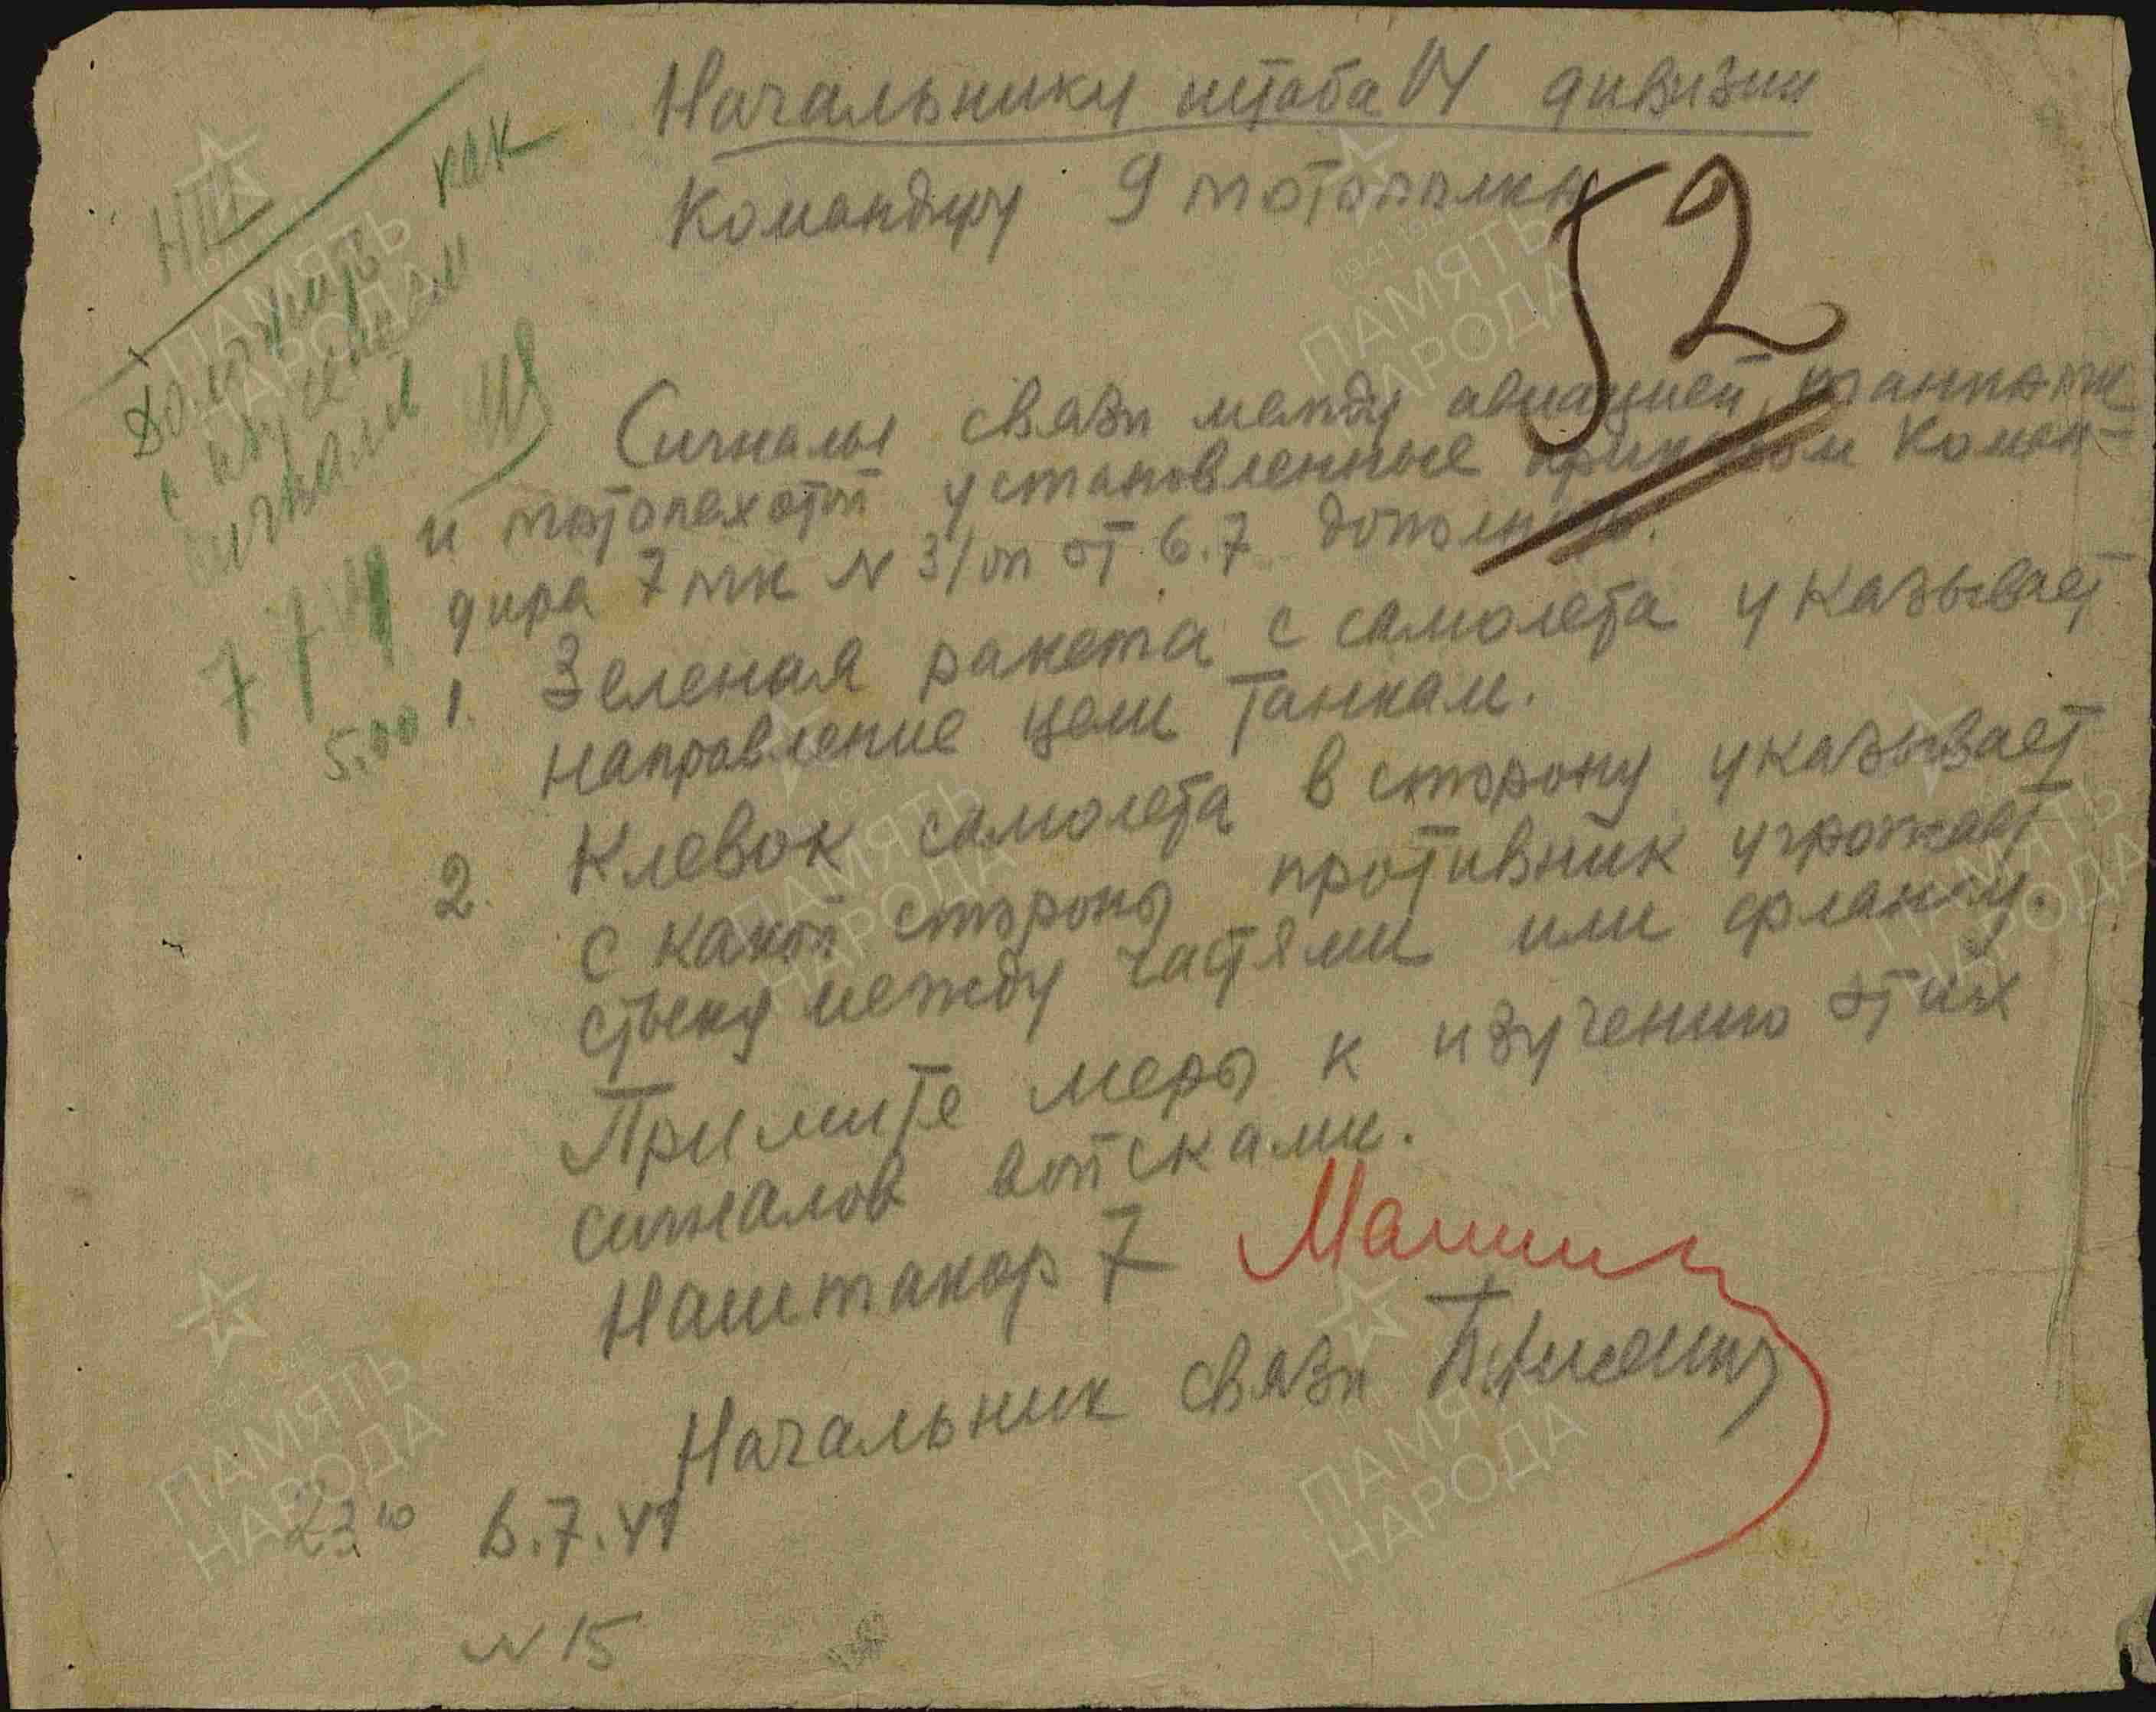 Начальнику штаба 14 дивизии
Командиру 9 мотополка
52
НШ
как
сигнали
7 7 41
5.00
Сигналы связи между авиацией, танками
и мотопехотой установленные приказом коман-
дира 7 мк N 3/оп от 6.7 дополняю.
1. Зеленая ракета с самолета указывает
направление цели танкам.
2. Клевок самолета в сторону указывает
с какой стороны противник угрожает
стыку между частями или флангу.
Примите меры к изучению этих
сигналов войсками.
Наштакор 7
Начальник связи
23 10 6.7.41
N 15
ПАМЯТЬ
НАРОДА